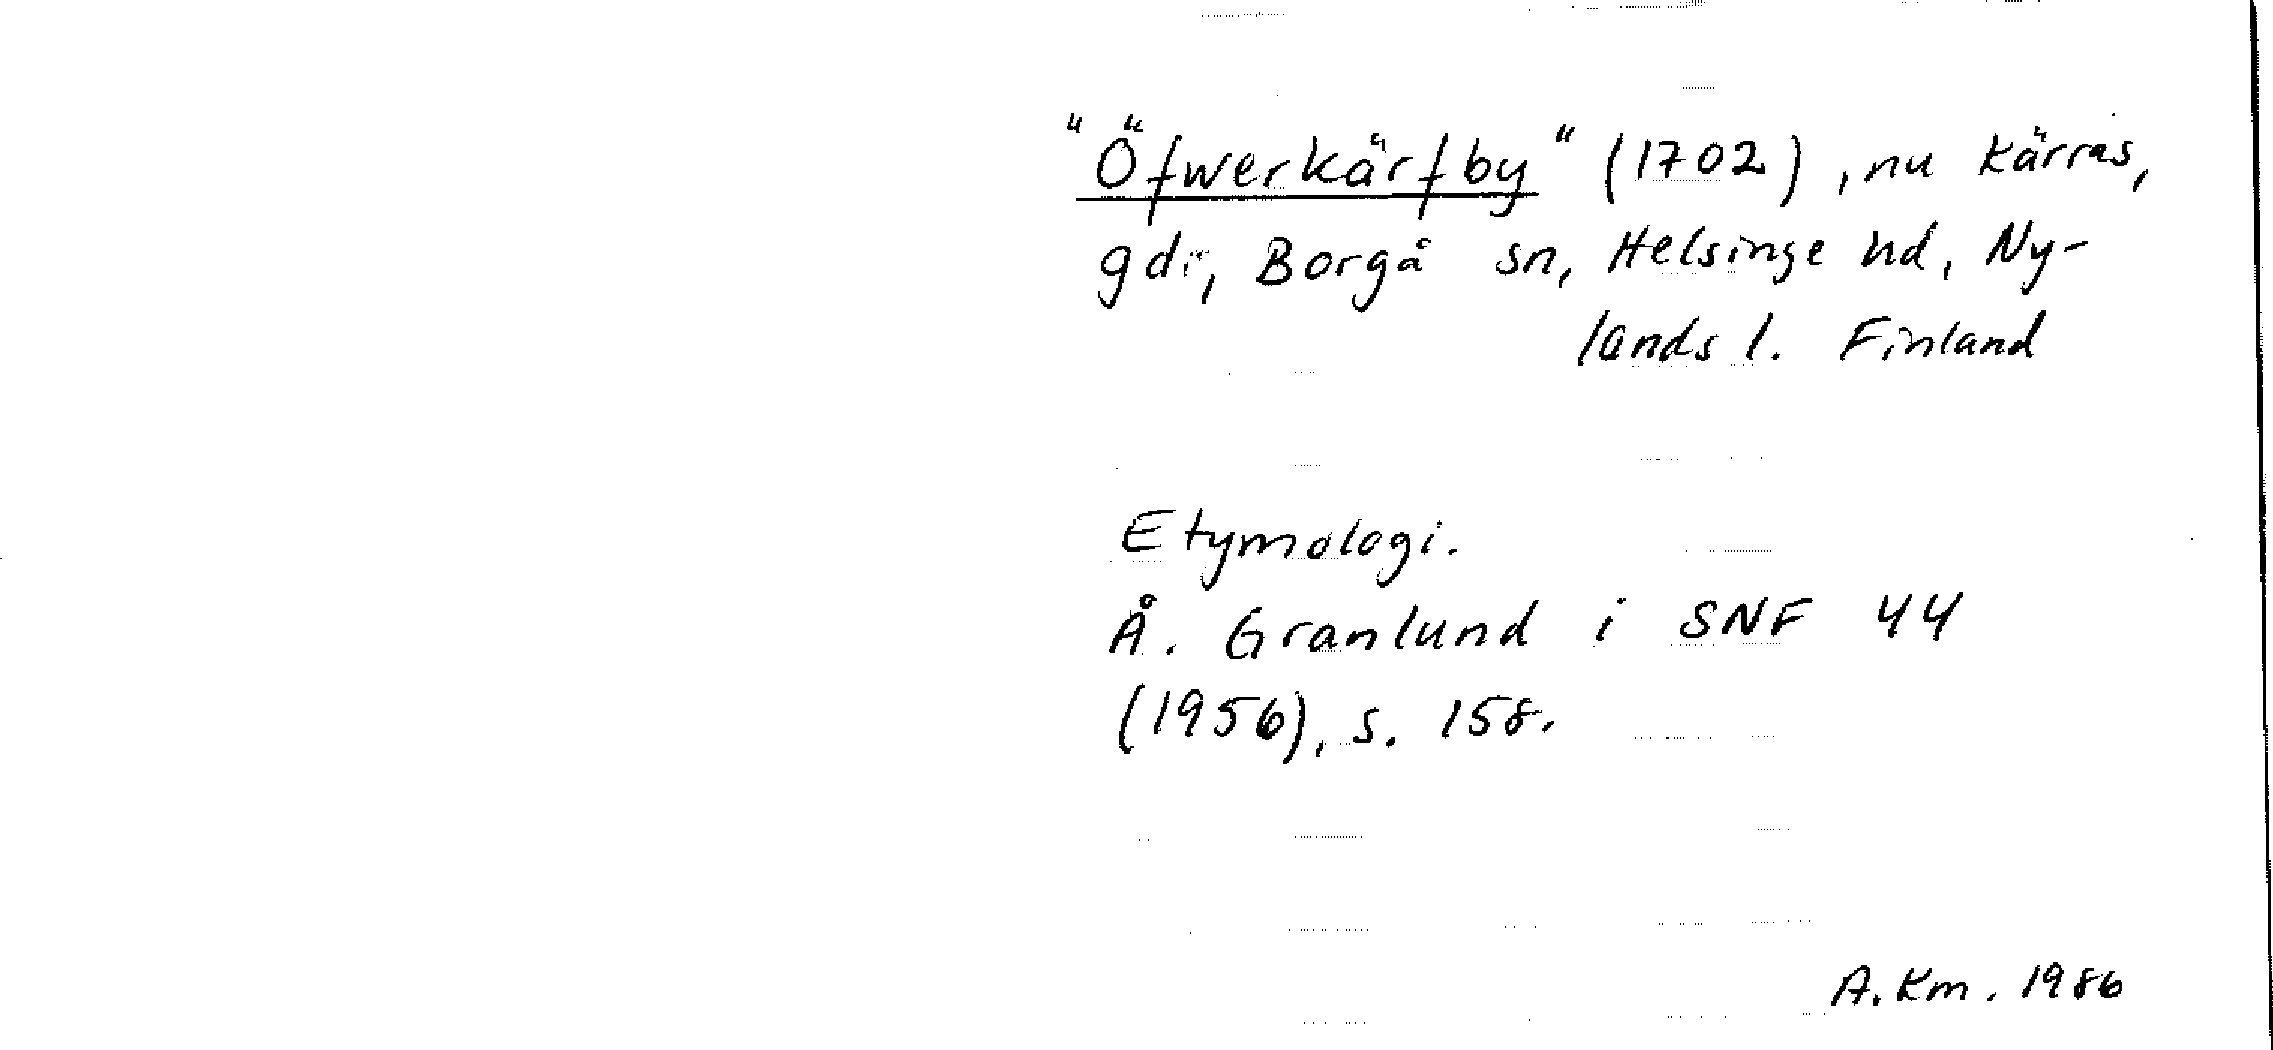 "Öfwerkärfby" (1702), nu Kärras,
gdr, Borgå sn, Helsinge hd, Ny-
lands l. Finland
Etymologi.
Å. Granlund i SNF 44
(1956), s. 158.
A. Km. 1986